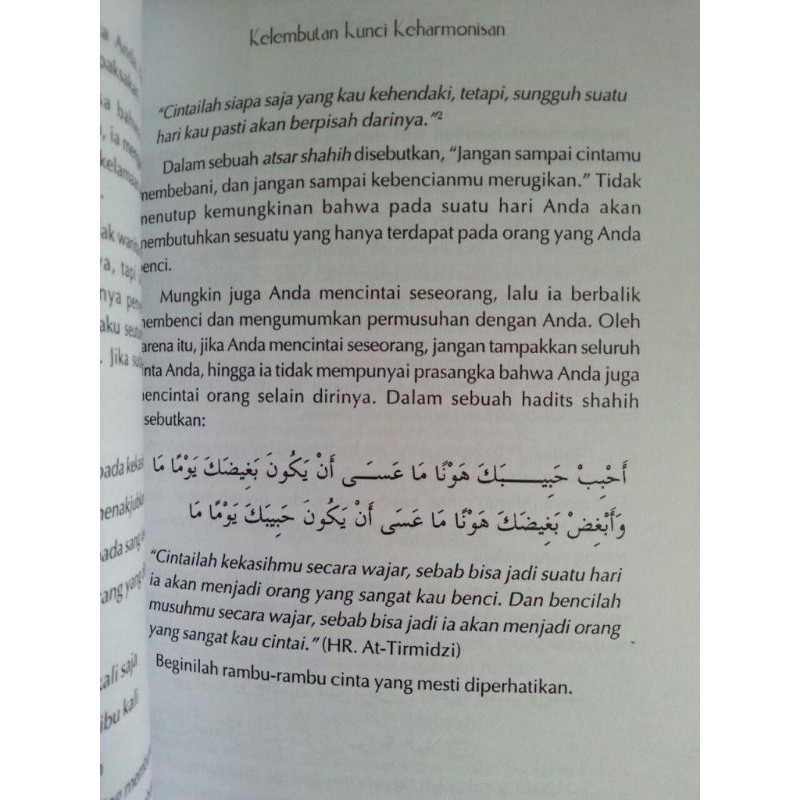 Kelembutan Kunci Keharmonisan
“Cintailah siapa saja yang kau kehendaki, tetapi, sungguh suatu
hari kau pasti akan berpisah darinya.”²
Dalam sebuah atsar shahih disebutkan, “Jangan sampai cintamu
membebani, dan jangan sampai kebencianmu merugikan.” Tidak
menutup kemungkinan bahwa pada suatu hari Anda akan
membutuhkan sesuatu yang hanya terdapat pada orang yang Anda
benci.
Mungkin juga Anda mencintai seseorang, lalu ia berbalik
membenci dan mengumumkan permusuhan dengan Anda. Oleh
karena itu, jika Anda mencintai seseorang, jangan tampakkan seluruh
cinta Anda, hingga ia tidak mempunyai prasangka bahwa Anda juga
mencintai orang selain dirinya. Dalam sebuah hadits shahih
sebutkan:
أَحْبِبْ حَبِيبَكَ هَوْنًا مَا عَسَى أَنْ يَكُونَ بَغِيضَكَ يَوْمًا مَا
وَأَبْغِضْ بَغِيضَكَ هَوْنًا مَا عَسَى أَنْ يَكُونَ حَبِيبَكَ يَوْمًا مَا
“Cintailah kekasihmu secara wajar, sebab bisa jadi suatu hari
ia akan menjadi orang yang sangat kau benci. Dan bencilah
musuhmu secara wajar, sebab bisa jadi ia akan menjadi orang
yang sangat kau cintai.” (HR. At-Tirmidzi)
Beginilah rambu-rambu cinta yang mesti diperhatikan.